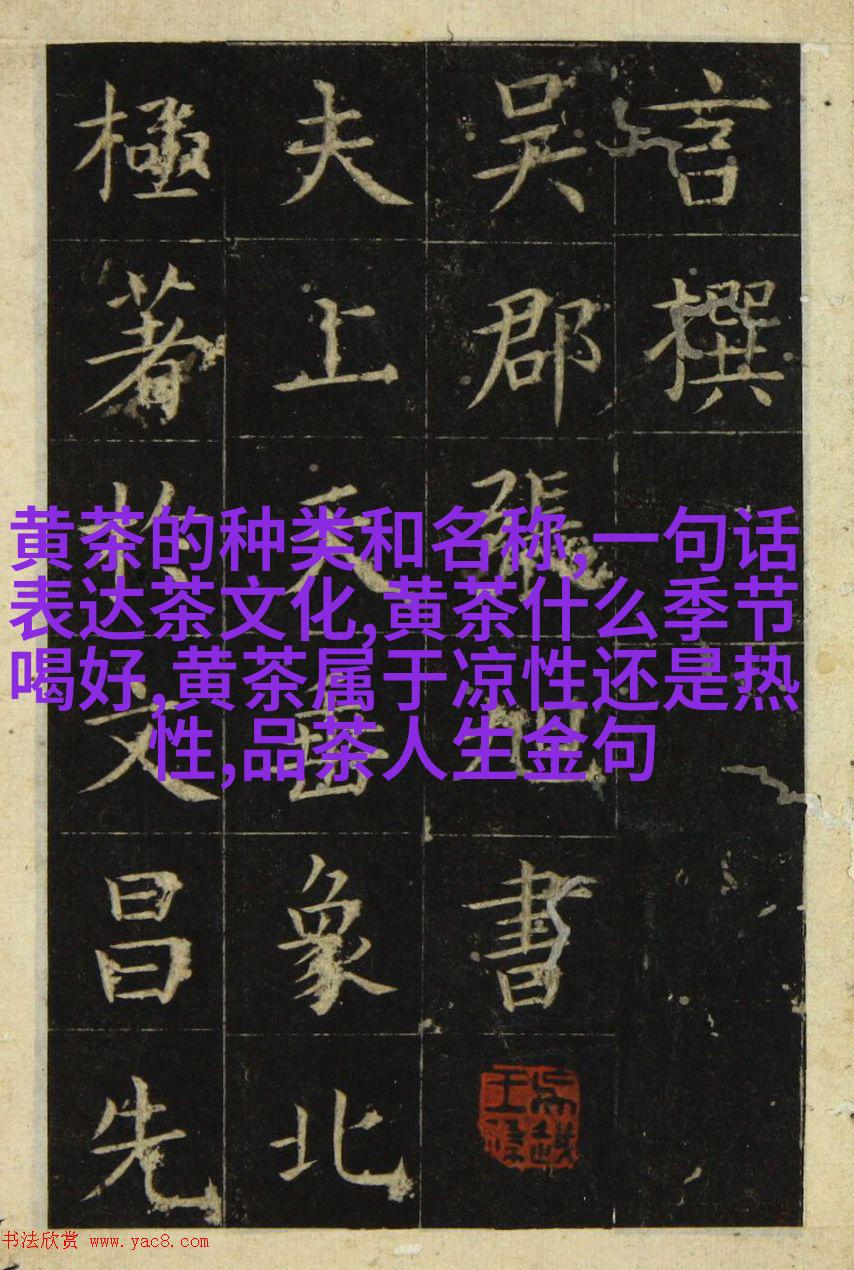 言撰
吴郡張旭書
夫上天垂象北
極著於文昌先
黄茶的种类和名称,一句话
表达茶文化,黄茶什么季节
喝好,黄茶属于凉性还是热
性,品茶人生金句
书法欣赏 www.yac8.com